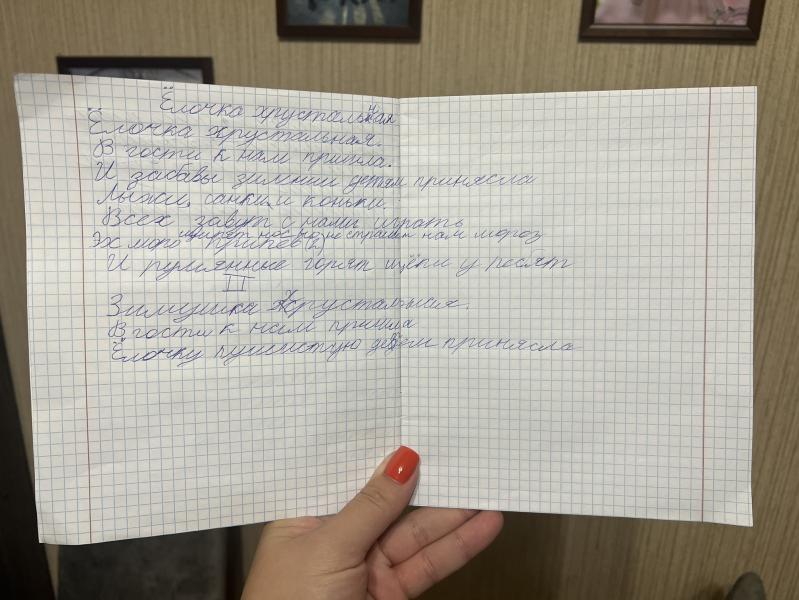 Ёлочка хрустальная
Ёлочка хрустальная.
В гости к нам пришла.
И забавы зимнии детям принясла
Лыжи, санки, и коньки
Всех завут с нами играть
щипет нос но не страшен нам мороз
Эх моро припев (2)
И румянные горят щёки у ребят
II
Зимушка Хрустальная.
В гости к нам пришла
Ёлочку пушистую детем принясла